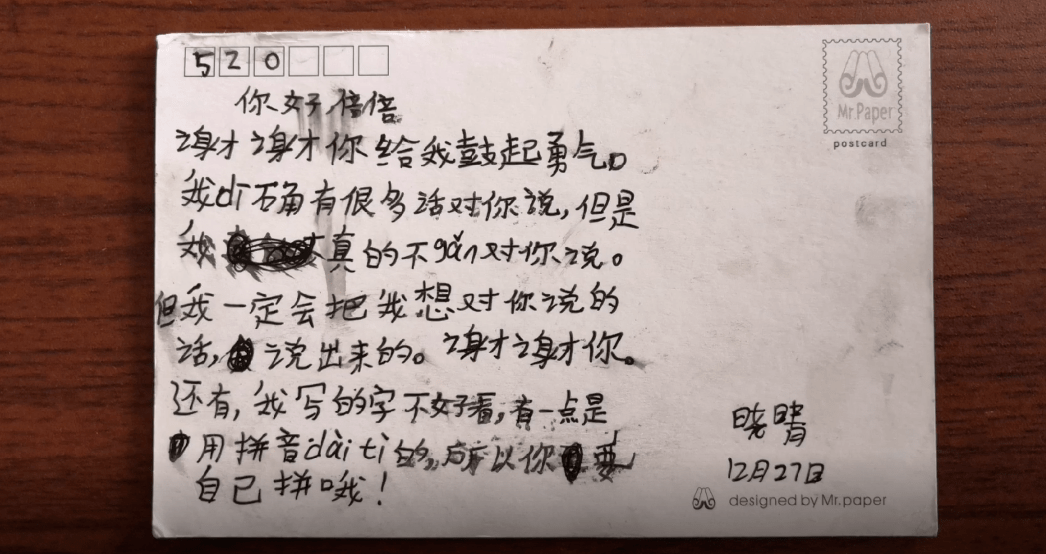 520
你好倍倍
谢谢你给我鼓起勇气。
我dì石角有很多话对你说,但是
我真的不gǎn对你说。
但我一定会把我想对你说的
话,说出来的。谢谢你。
还有,我写的字不好看,有一点是
用拼音dàití的,所以你要
自己拼哦!
晓晴
12月27日
Mr.Paper
postcard
designed by Mr.paper